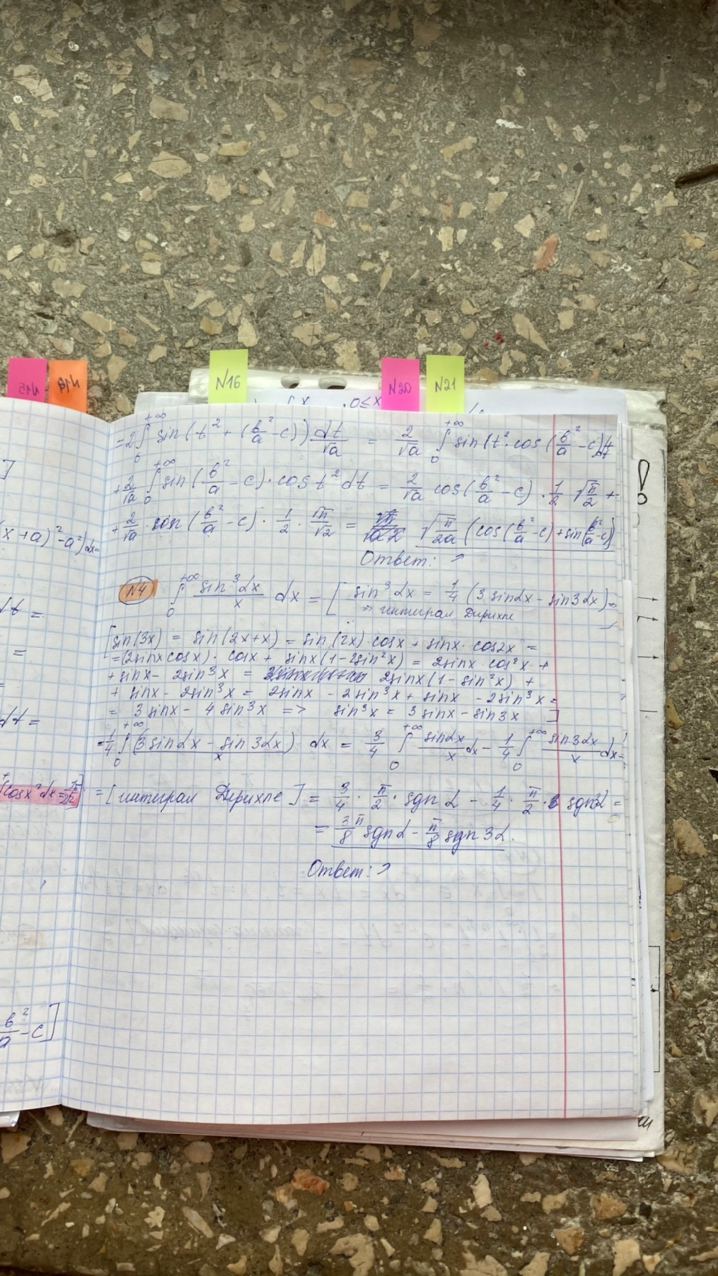 N15
N18
N16
N20
N21
0≤x
= 2 ∫₀^{+∞} sin(t² + (b²/a - c)) dt/√a = 2/√a ∫₀^{+∞} sin(t²·cos(b²/a - c) dt
+ 2/√a ∫₀^{+∞} sin(b²/a - c)·cos t² dt = 2/√a cos(b²/a - c)·1/2·√π/2 +
+ 2/√a·sin(b²/a - c)·1/2·√π/√2 = √π/2a (cos(b²/a - c) + sin(b²/a - c))
Ответ: ↗
N4 ∫₀^{+∞} sin³αx/x dx = [ sin³αx = 1/4 (3 sinαx - sin3αx) =
⇒ интеграл Дирихле ]
[sin(3x) = sin(2x+x) = sin(2x) cosx + sinx·cos2x =
= (2sinx cosx)·cosx + sinx(1-2sin²x) = 2sinx cos²x +
+ sinx - 2sin³x = 2sinx(1-sin²x) +
+ sinx - 2sin³x = 2sinx - 2sin³x + sinx - 2sin³x =
= 3sinx - 4sin³x => sin³x = 3sinx - sin3x ]
= 1/4 ∫₀^{+∞} (3sinαx - sin3αx)/x dx = 3/4 ∫₀^{+∞} sinαx/x dx - 1/4 ∫₀^{+∞} sin3αx/x dx =
= [интеграл Дирихле] = 3/4·π/2·sgnα - 1/4·π/2·sgn3α =
= 3π/8 sgnα - π/8 sgn3α.
Ответ: ↗
]
(x+a)²-a²)dx=
dt =
=
dt =
cosx²dx=
b²/a - c]